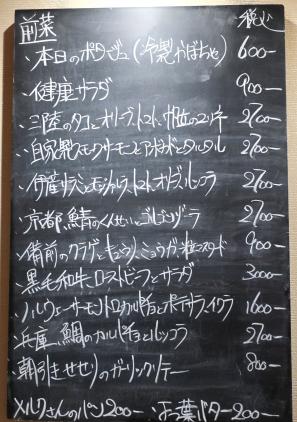 前菜 税込
・本日のポタージュ(冷製かぼちゃ) 600-
・健康サラダ 900-
・三陸のタコとオリーブ、トマト、のマリネ 2700-
・自家製スモークサーモンとアボカドとタルタル 2700-
・伊産サラミとモッツァレラ、トマト、オリーブ、ルッコラ 2700-
・京都、鯖のくんせいとゴルゴンゾーラ 2700-
・備前のクラゲとキュウリ、ミョウガ、粒マスタード 900-
・黒毛和牛、ローストビーフとサラダ 3000-
・ノルウェーサーモントロカルパチョとポテサラ、イクラ 1600-
・兵庫、鯛のカルパチョとルッコラ 2700-
・朝引きせせりのガーリックソテー 800-
メルクさんのパン200- ・お葉バター200-